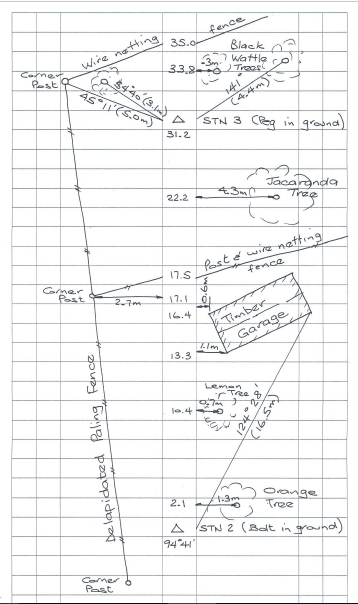 Wire netting fence
35.0
Black
Wattle
Trees
.3m
33.8
Corner
Post
84°40' (3.1m)
45°11' (5.0m)
141°
(4.4m)
STN 3 (Peg in ground)
31.2
Jacaranda
Tree
4.3m
22.2
Post & wire netting
fence
17.5
Corner
Post
2.7m
17.1
0.6m
16.4
Timber
Garage
1.1m
13.3
Lemon
Tree
0.7m
10.4
124° 28'
(16.5m)
Delapidated Paling Fence
Orange
Tree
1.3m
2.1
STN 2 (Bolt in ground)
94°41'
Corner
Post